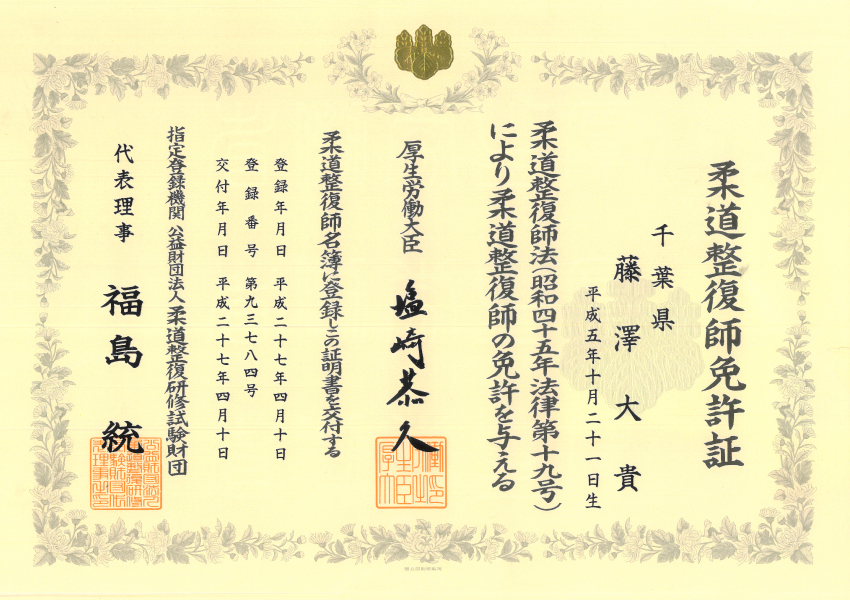 柔道整復師免許証
千葉県
藤澤大貴
平成五年十月二十一日生
柔道整復師法(昭和四十五年法律第十九号)
により柔道整復師の免許を与える
厚生労働大臣 塩崎恭久
柔道整復師名簿に登録しこの証明書を交付する
登録年月日 平成二十七年四月十日
登録番号 第九三七八四号
交付年月日 平成二十七年四月十日
指定登録機関 公益財団法人柔道整復研修試験財団
代表理事 福島統